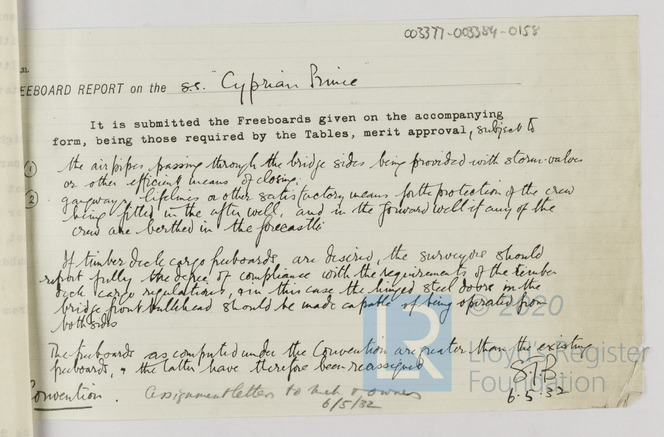 003377-003384-0158
EEBOARD REPORT on the s.s. "Cyprian Prince
It is submitted the Freeboards given on the accompanying
form, being those required by the Tables, merit approval, subject to
1 the air pipes passing through the bridge sides being provided with storm-valves
or other efficient means of closing.
2 gangways, lifelines or other satisfactory means for the protection of the crew
being fitted in the after well, and in the forward well if any of the
crew are berthed in the forecastle
If timber deck cargo freeboards, are desired, the surveyors should
report fully the degree of compliance with the requirements of the timber
deck cargo regulations, & in this case the hinged steel doors in the
bridge front bulkhead should be made capable of being operated from
both sides
The freeboards as computed under the Convention are greater than the existing
freeboards, & the latter have therefore been reassigned
S.T.B
6.5.32
onvention. Assignment letters to & owners
6/5/32
© 2020
LR
Lloyd's Register
Foundation